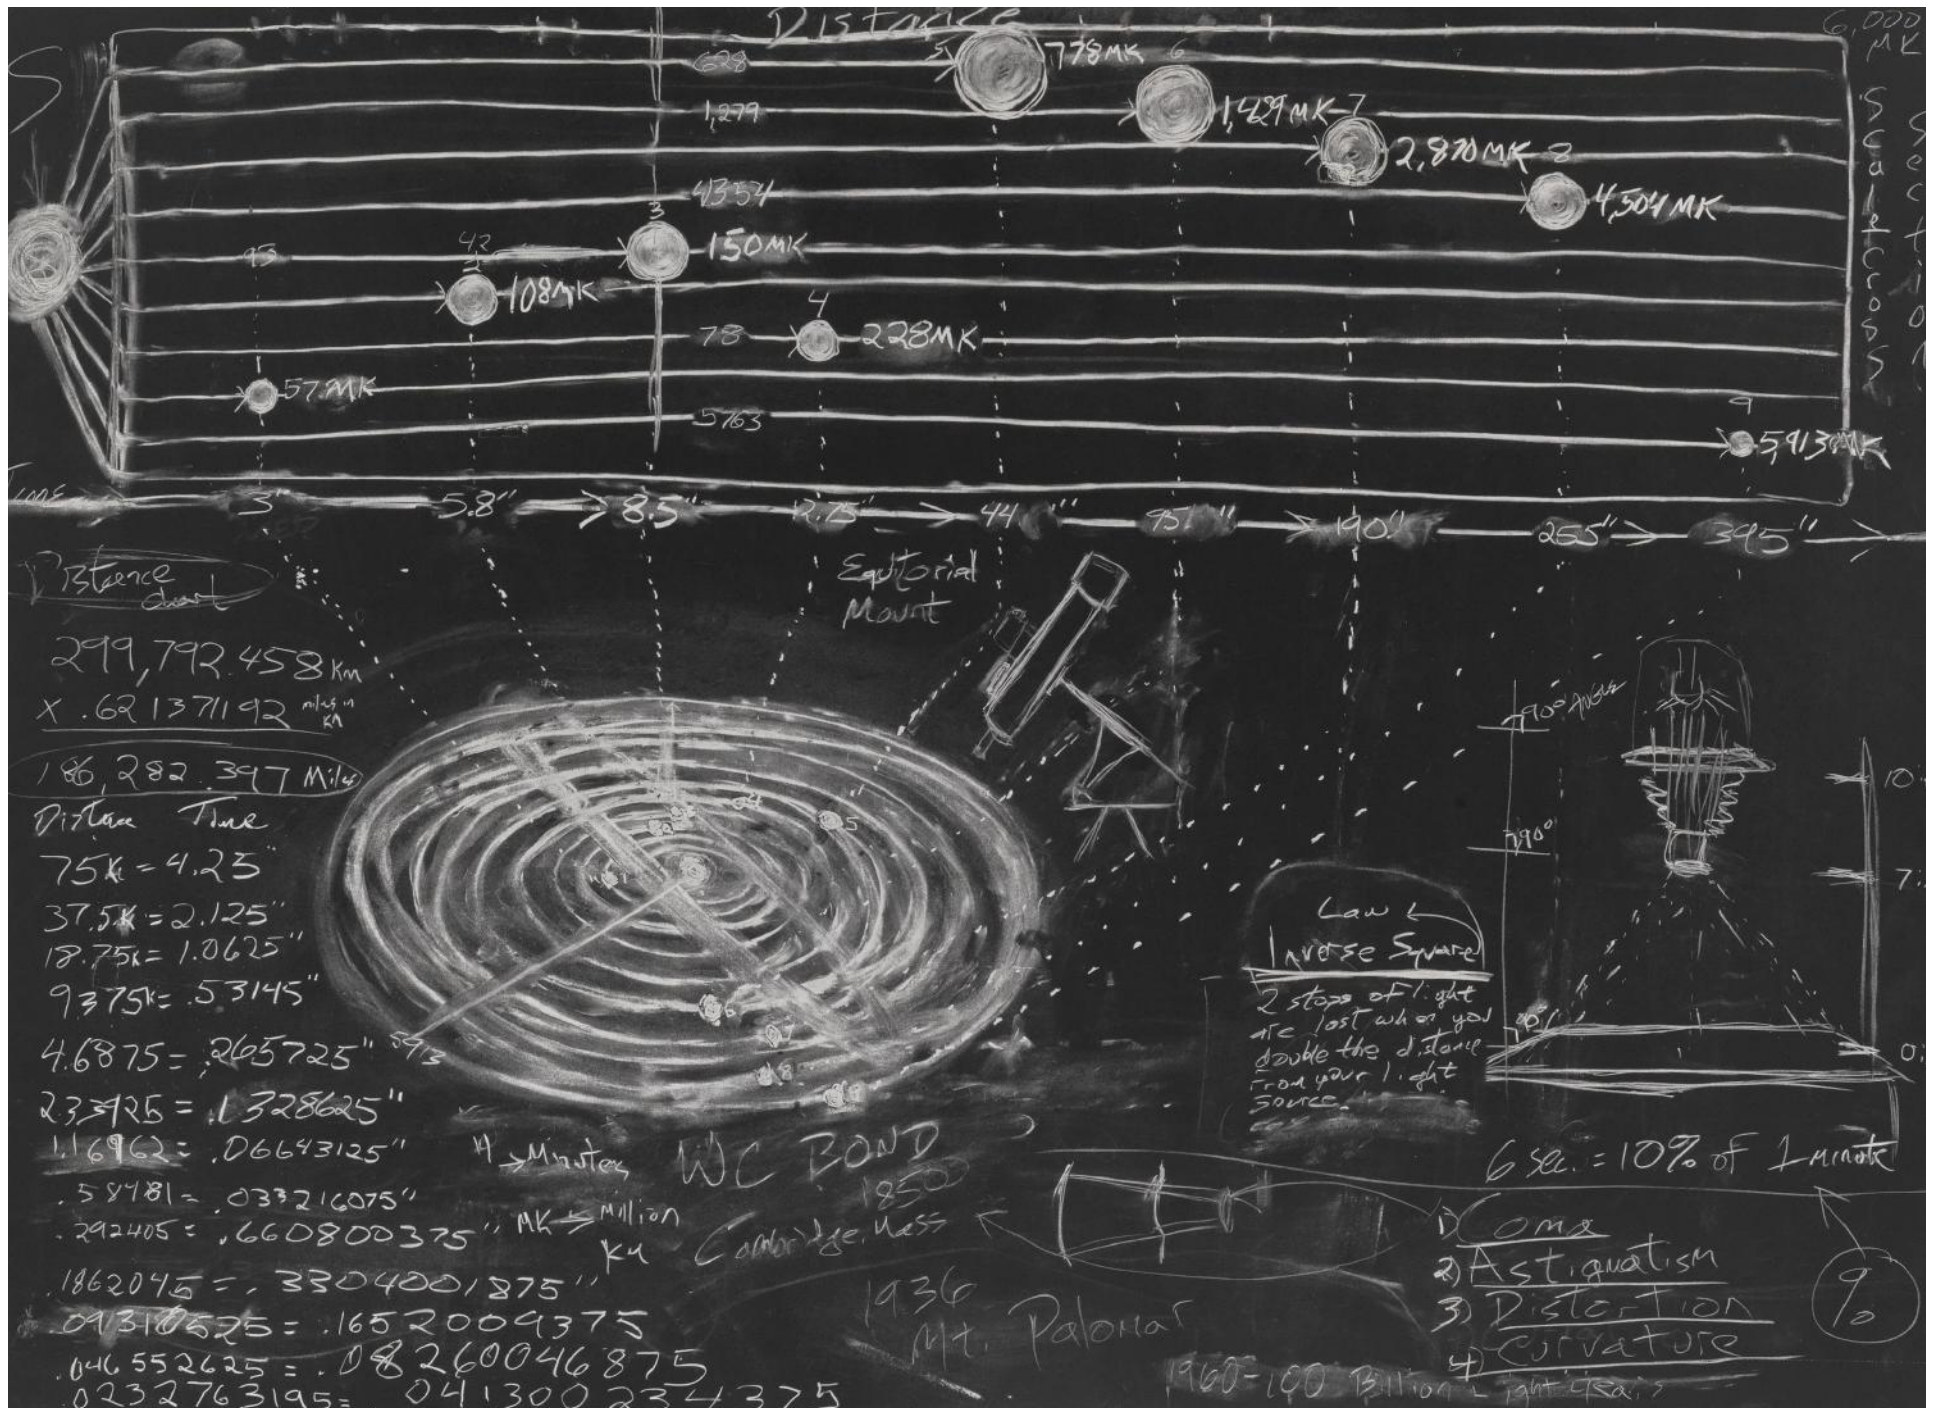 Distance
6,000
MK
S
628
5
778MK
6
1,279
1,429MK
7
2,870MK
8
4354
4,504MK
3
93
42
2
150MK
108MK
4
78
228MK
57.MK
9
5763
5,913MK
Scale Cross
Section
Time
3"
5.8"
8.5"
12.75"
44"
95'"
190"
255"
395"
Distance
chart
Equitorial
Mount
299,792.458 Km
X .621371192 miles in
KM
186,282.397 Miles
Distance Time
75K = 4.25"
37.5K = 2.125"
18.75K = 1.0625"
9375K = .53145"
4.6875 = .265725"
2.33925 = .1328625"
1.16962 = .06643125"
.58481 = .033216075"
.292405 = .660800375"
.1862045 = .3304001875"
.093105525 = .1652009375
.046552625 = .08260046875
.0232763195 = 041300234375
4
5
6
7
8
9
5913
" → Minutes
MK → Million
KM
WC BOND
1850
Cambridge, Mass
1936
Mt. Palomar
1960-100 Billion Light Years
90° Angle
90°
90°
10
7
0
Law
Inverse Square
2 stops of light
are lost when you
double the distance
From your light
source.
6 sec. = 10% of 1 minute
1) Coma
2) Astigmatism
3) Distortion
4) Curvature
%